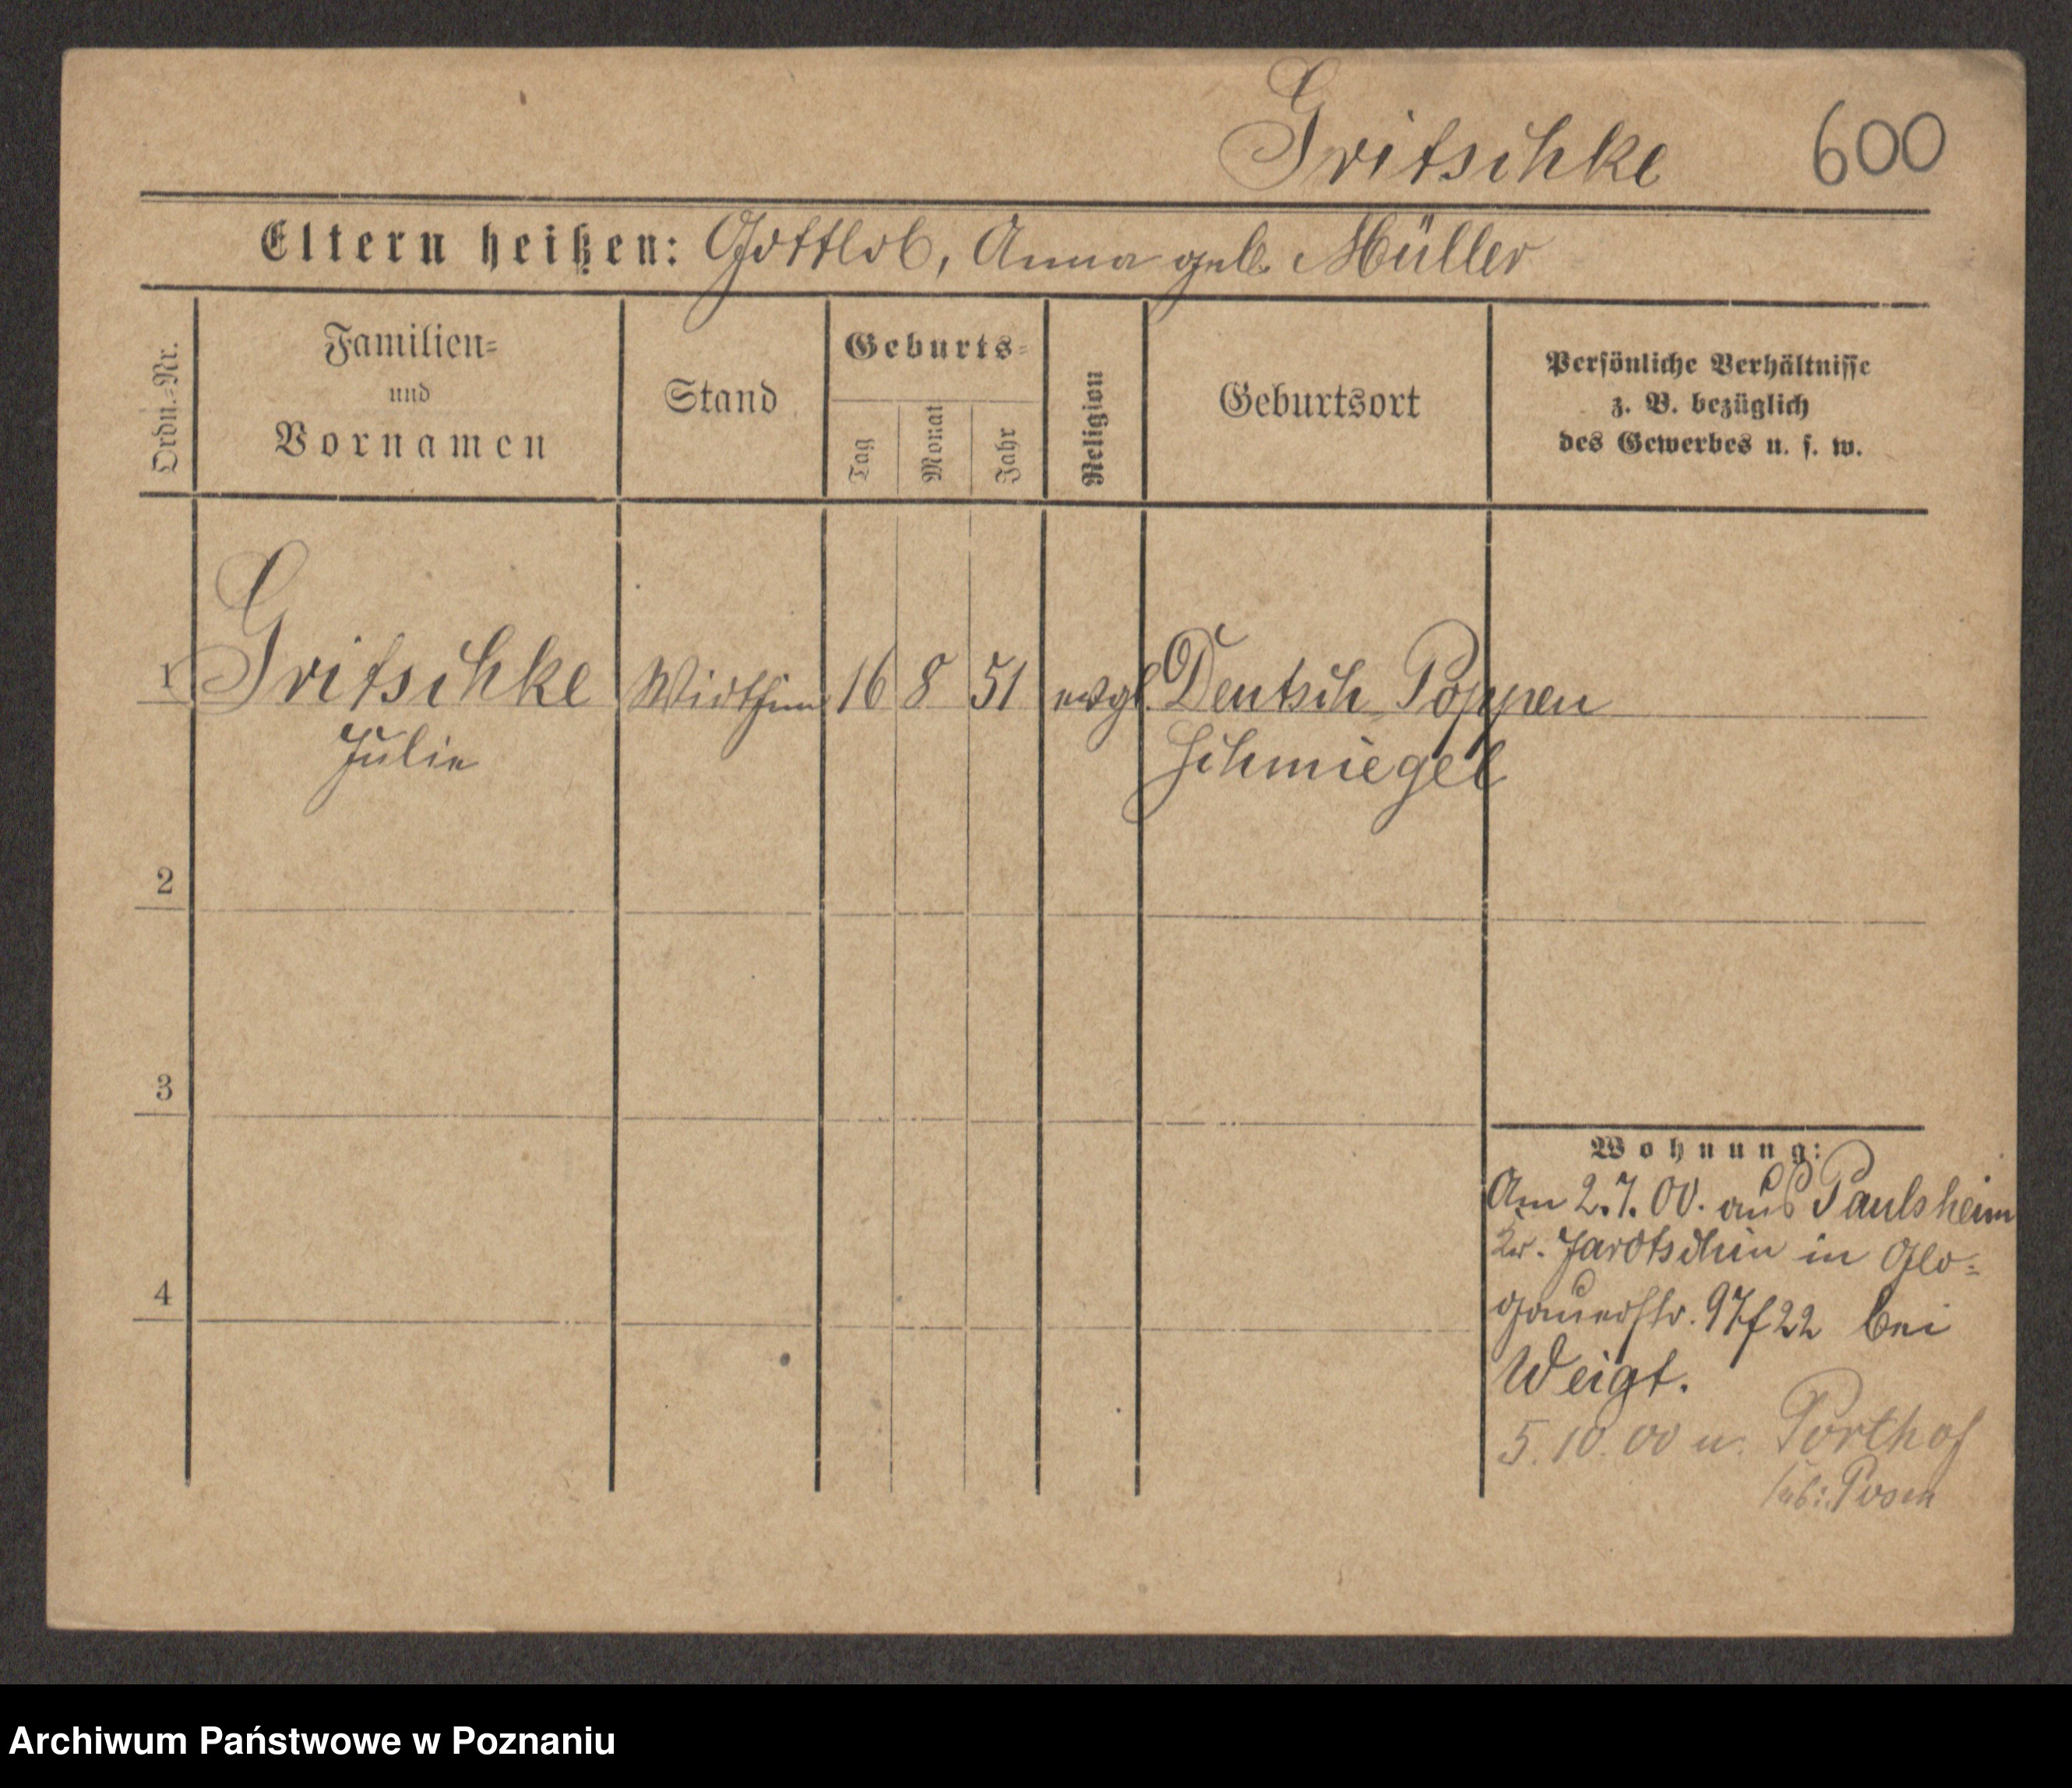 Gritschke 600
Eltern heißen: Gottlob, Anna geb. Müller
Ordn.=Nr.
Familien=
und
Vornamen
Stand
Geburts=
Tag
Monat
Jahr
Religion
Geburtsort
Persönliche Verhältnisse
z. B. bezüglich
des Gewerbes u. s. w.
1 Gritschke Wirthin 16 8 51 evgl. Deutsch Poppen
Julie Schmiegel
2
3
4
Wohnung:
Am 2.7.00. aus Paulsheim
Kr. Jarotschin in Glo=
gauerstr. 97/22 bei
Weigt.
5.10.00 u.
Posen
Archiwum Państwowe w Poznaniu